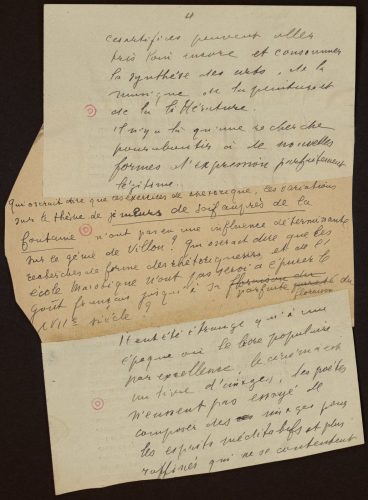 4
ces artifices peuvent aller
très loin encore et consommer
la synthèse des arts, de la
musique, de la peinture et
de la littérature.
Il n'y a là qu'une recherche
pour aboutir à de nouvelles
formes d'expression parfaitement
légitime.
Qui oserait dire que les exercices de rhétorique, ces variations
sur le thème de je meurs de soif auprès de la
fontaine n'ont pas eu une influence déterminante
sur le génie de Villon? Qui oserait dire que les
recherches de forme des rhétoriqueurs et de l'
école Marotique n'ont pas servi à épurer le
goût français jusqu'à sa floraison du
parfaite pureté du
floraison
XVIIe siècle?
Il eut été étrange qu'à une
époque où l'art populaire
par excellence, le cinéma est
un livre d'images, les poètes
n'eussent pas essayé de
composer des images pour
les esprits méditatifs et plus
raffinés qui ne se contentent